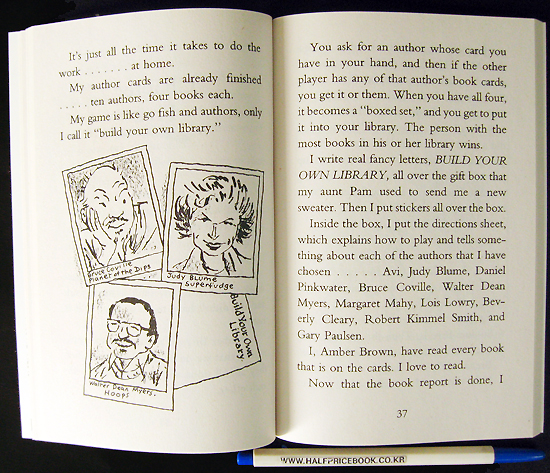 It's just all the time it takes to do the
work . . . . . . . at home.
My author cards are already finished
. . . . . ten authors, four books each.
My game is like go fish and authors, only
I call it "build your own library."
Bruce Coville
Planet of the Dips
Judy Blume
Superfudge
Walter Dean Myers,
HOOPS
Build Your Own
Library
You ask for an author whose card you
have in your hand, and then if the other
player has any of that author's book cards,
you get it or them. When you have all four,
it becomes a "boxed set," and you get to put
it into your library. The person with the
most books in his or her library wins.
I write real fancy letters, BUILD YOUR
OWN LIBRARY, all over the gift box that
my aunt Pam used to send me a new
sweater. Then I put stickers all over the box.
Inside the box, I put the directions sheet,
which explains how to play and tells some-
thing about each of the authors that I have
chosen . . . . . Avi, Judy Blume, Daniel
Pinkwater, Bruce Coville, Walter Dean
Myers, Margaret Mahy, Lois Lowry, Bev-
erly Cleary, Robert Kimmel Smith, and
Gary Paulsen.
I, Amber Brown, have read every book
that is on the cards. I love to read.
Now that the book report is done, I
37
WWW.HALFPRICEBOOK.CO.KR